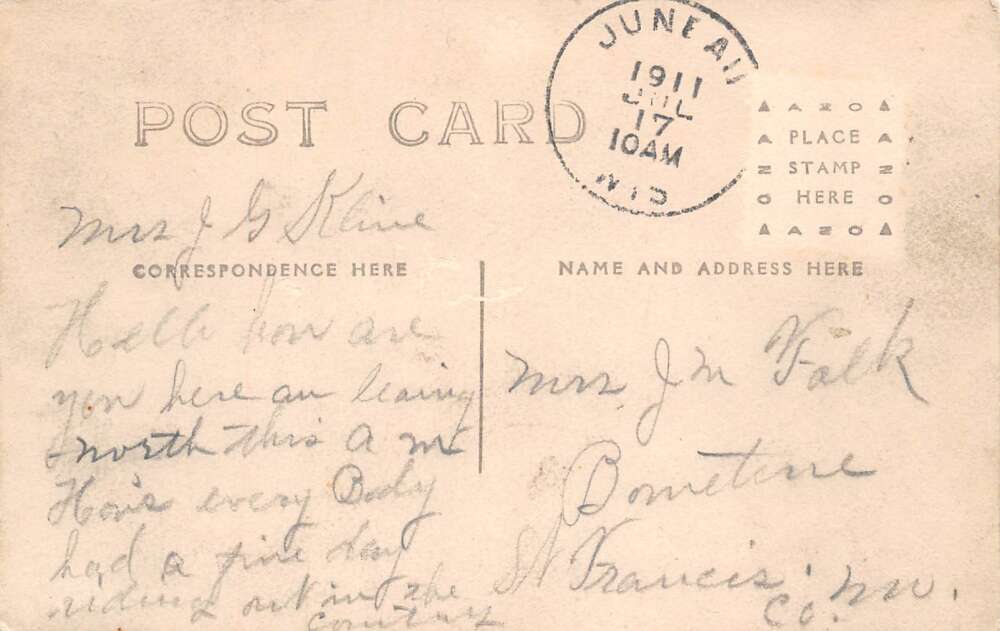 POST CARD
JUNEAU
1911
JUL
17
10AM
WIS
AZO
PLACE
STAMP
HERE
AZO
Mrs J G Kline
CORRESPONDENCE HERE
Hello how are
you here am leaving
north this A m
How's every Body
had a fine day
riding out in the
country
NAME AND ADDRESS HERE
Mrs J M Falk
Bometerre
St Francis
Co. mo.